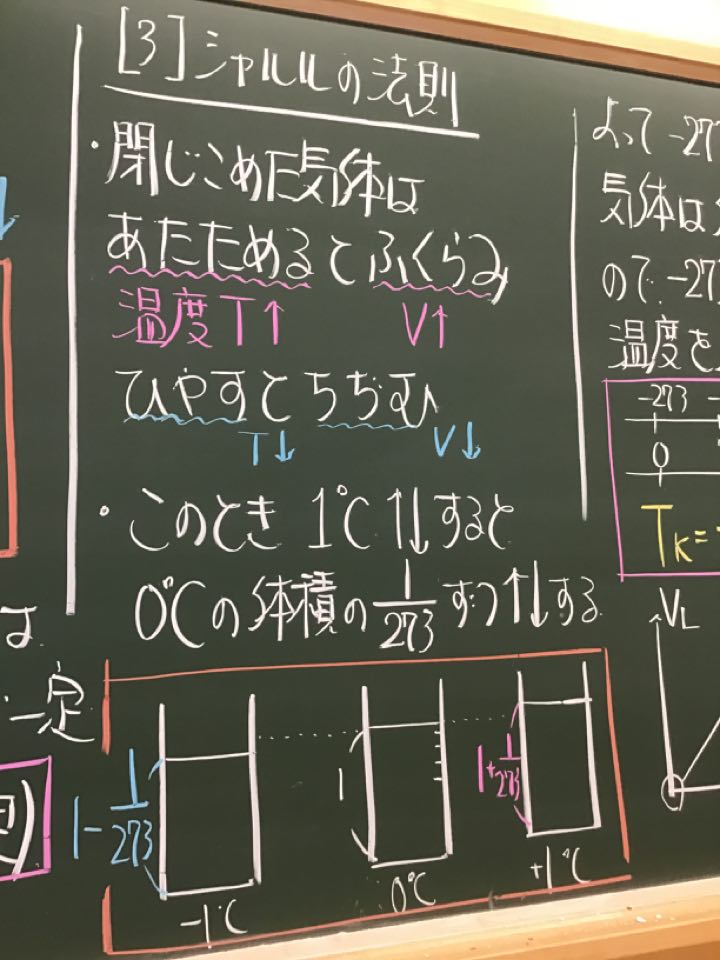 [3]シャルルの法則
・閉じこめた気体は
あたためるとふくらみ
温度T↑ V↑
ひやすとちぢむ
T↓ V↓
・このとき 1℃↑↓すると
0℃の体積の1/273ずつ↑↓する
1-1/273
1
1+1/273
-1℃
0℃
+1℃
は
一定
よって -27
気体は
ので -27
温度を
-273
0
TK=
VL